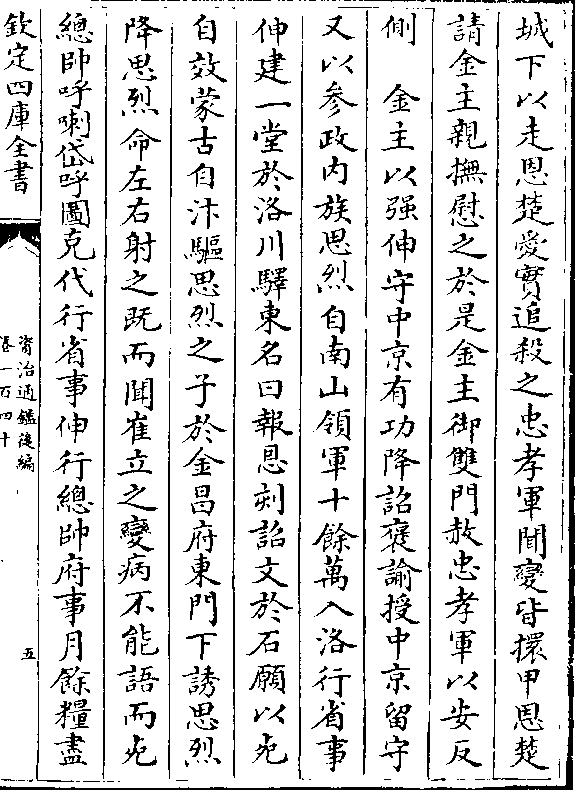 城下以走恩楚愛實追殺之忠孝軍聞變皆擐甲恩楚
請金主親撫慰之於是金主御雙門赦忠孝軍以安反
側　金主以强伸守中京有功降詔褒諭授中京留守
又以參政内族思烈自南山領軍十餘萬入洛行省事
伸建一堂於洛川驛東名曰報恩刻詔文於石願以死
自效蒙古自汴驅思烈之子於金昌府東門下誘思烈
降思烈命左右射之既而聞崔立之變病不能語而死
總帥呼喇岱呼圖克代行省事伸行總帥府事月餘糧盡
欽定四庫全書
資治通鑑後編
卷一百四十
五